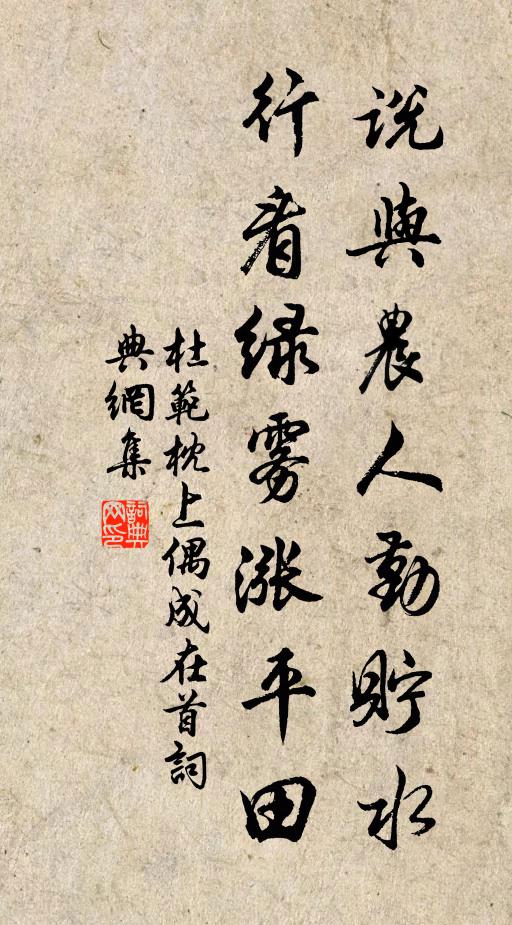 説與農人勤貯水
行看緑雾漲平田
杜範枕上偶成在首詞
典網集
詞典
网印